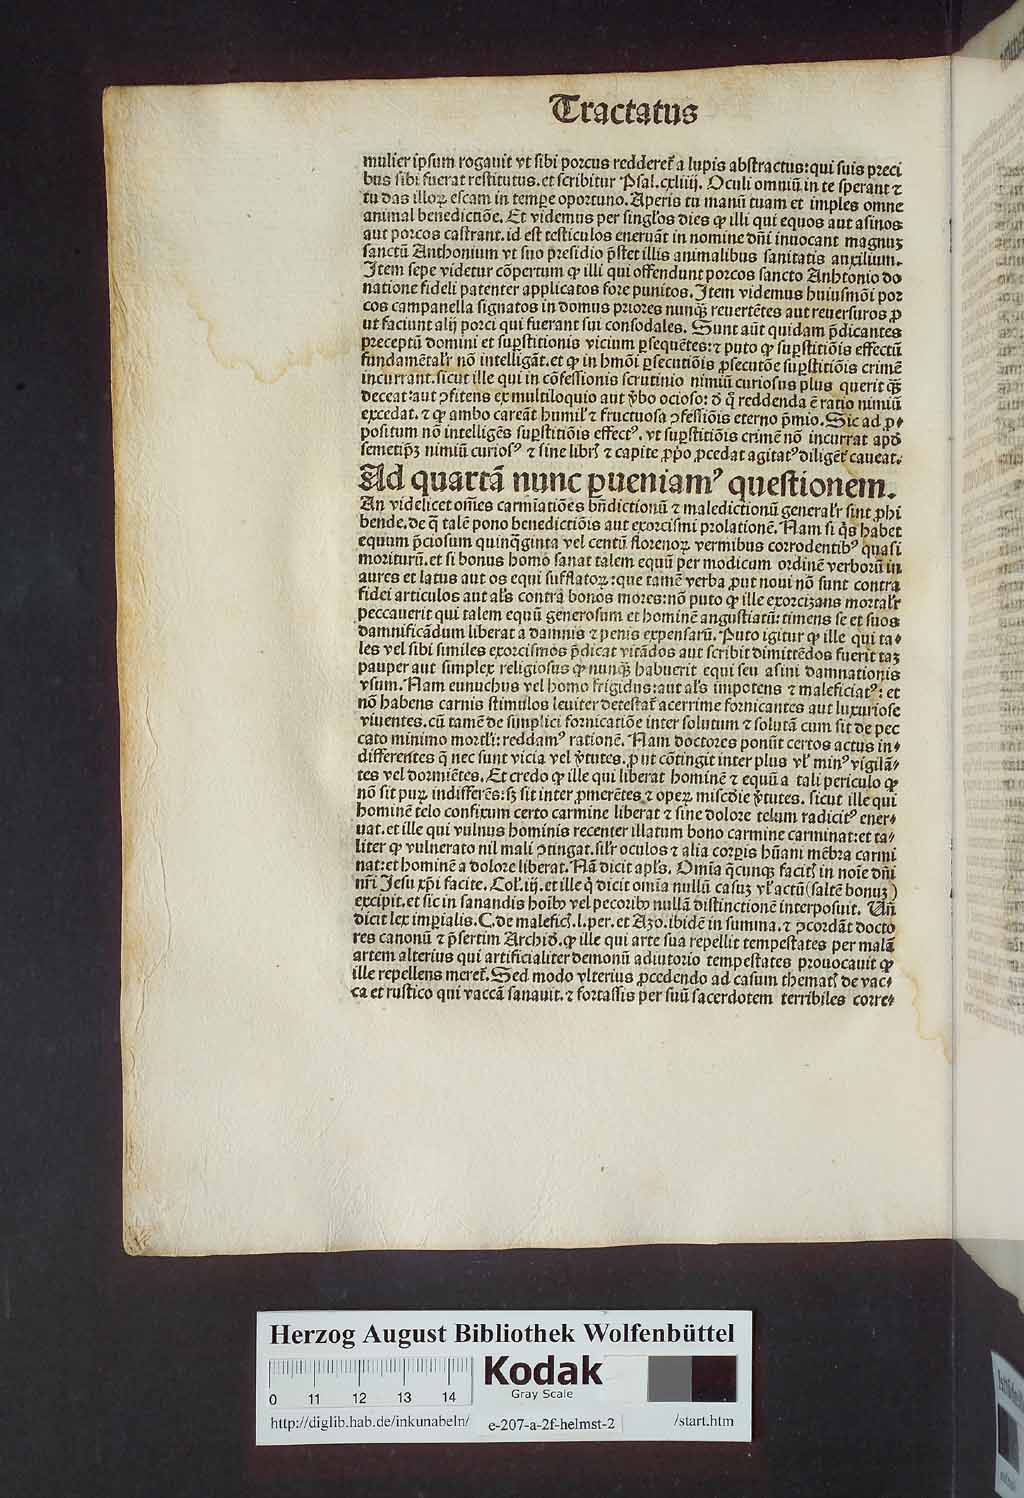 Tractatus
mulier ipsum rogauit vt sibi porcus reddereť a lupis abstractus: qui suis preci
bus sibi fuerat restitutus. et scribitur Psal. cxliiij. Oculi omniū in te sperant ⁊
tu das illoꝝ escam in tempe oportuno. Aperis tu manū tuam et imples omne
animal benedictiōe. Et videmus per singl'os dies ꝙ illi qui equos aut asinos
aut porcos castrant. id est testiculos eneruāt in nomine dn̄i inuocant magnuꝫ
sanctū Anthonium vt suo p̄sidio p̄stet illis animalibus sanitatis auxilium.
Item sepe videtur cōpertum ꝙ illi qui offendunt porcos sancto Anhtonio do
natione fideli patenter applicatos fore punitos. Item videmus huiusmōi por
cos campanella signatos in domus priores nunꝗ̈ reuertētes aut reuersuros ꝓ
ut faciunt alij porci qui fuerant sui consodales. Sunt aūt quidam p̄dicantes
preceptū domini et suꝑstitionis vicium ꝑsequētes: ⁊ puto ꝙ suꝑstitiōis effectū
fundamētal'r nō intelligāt. et ꝙ in hmōi ꝑsecutiōis ꝓsecutōe suꝑstitiōis crimē
incurrant. sicut ille qui in cōfessionis scrutinio nimiū curiosus plus querit ꝗ̈ꝫ
deceat: aut ꝯfitens ex multiloquio aut v̓bo ocioso: ð q̄ reddenda ē ratio nimiū
excedat. ⁊ ꝙ ambo careāt humil' ⁊ fructuosa ꝯfessiōis eterno p̄mio. Sic ad ꝓ-
positum nō intelligēs suꝑstitiōis effectꝰ. vt suꝑstitiōis crimē nō incurrat apð
semetip̄ꝫ nimiū curiosꝰ ⁊ sine libr̄ ⁊ capite ꝓpo ꝓcedat agitatꝰ diligēť caueat.
Ad quartā nunc ꝑueniamꝰ questionem.
An videlicet om̄es carmiatiōes bn̄dictionū ⁊ maledictionū general'r sint ꝓhi
bende. de q̄ talē pono benedictiōis aut exorcismi prolationē. Nam si q̇s habet
equum p̄ciosum quinq̄ginta vel centū florenoꝝ vermibus corrodentibꝰ quasi
moriturū. et si bonus homo sanat talem equū per modicum ordinē verborū in
aures et latus aut os equi sufflatoꝝ: que tamē verba ꝓut noui nō sunt contra
fidei articulos aut al's contra bonos mores: nō puto ꝙ ille exorcizans mortal'r
peccauerit qui talem equū generosum et hominē angustiatū: timens se et suos
damnificādum liberat a damnis ⁊ penis expensarū. Puto igitur ꝙ ille qui ta-
les vel sibi similes exorcismos p̄dicat vitādos aut scribit dimittēdos fuerit taꝫ
pauper aut simplex religiosus ꝙ nunꝗ̈ habuerit equi seu asini damnationis
vsum. Nam eunuchus vel homo frigidus: aut al's impotens ⁊ maleficiatꝰ: et
nō habens carnis stimulos leuiter detestať acerrime fornicantes aut luxuriose
viuentes. cū tamē de simplici fornicatiōe inter solutum ⁊ solutā cum sit de pec
cato minimo mortl'i: reddamꝰ rationē. Nam doctores ponūt certos actus in-
differentes q̄ nec sunt vicia vel v̓tutes. ꝓut cōtingit inter plus vl' minꝰ vigilā-
tes vel dormiētes. Et credo ꝙ ille qui liberat hominē ⁊ equū a tali periculo ꝙ
nō sit puꝝ indifferēs: sꝫ sit inter ꝓmerētes ⁊ opeꝝ misc̄die v̓tutes. sicut ille qui
hominē telo confixum certo carmine liberat ⁊ sine dolore telum radicitꝰ ener-
uat. et ille qui vulnus hominis recenter illatum bono carmine carminat: et ta-
liter ꝙ vulnerato nil mali ꝯtingat. sil'r oculos ⁊ alia corꝑis hūani mēbra carmi
nat: et hominē a dolore liberat. Nā dicit apl's. Om̄ia q̄cunqꝫ facit' in noīe dn̄i
nr̄i Jesu xp̄i facite. Col'. iij. et ille q̇ dicit om̄ia nullū casuꝫ vl' actū (saltē bonuꝫ)
excipit. et sic in sanandis hoībꝫ vel pecoribꝫ nullā distinctionē interposuit. Vn̄
dicit lex imꝑialis. C. de malefic'. l. per. et Azo. ibidē in summa. ⁊ ꝯcordāt docto
res canonū ⁊ p̄sertim Archið. ꝙ ille qui arte sua repellit tempestates per malā
artem alterius qui artificialiter demonū adiutorio tempestates prouocauit ꝙ
ille repellens mereť. Sed modo vlterius ꝓcedendo ad casum themat' de vac-
ca et rustico qui vaccā sanauit. ⁊ fortassis per suū sacerdotem terribiles corre-
Herzog August Bibliothek Wolfenbüttel
Kodak
Gray Scale
0 11 12 13 14
http://diglib.hab.de/inkunabeln/ e-207-a-2f-helmst-2 /start.htm